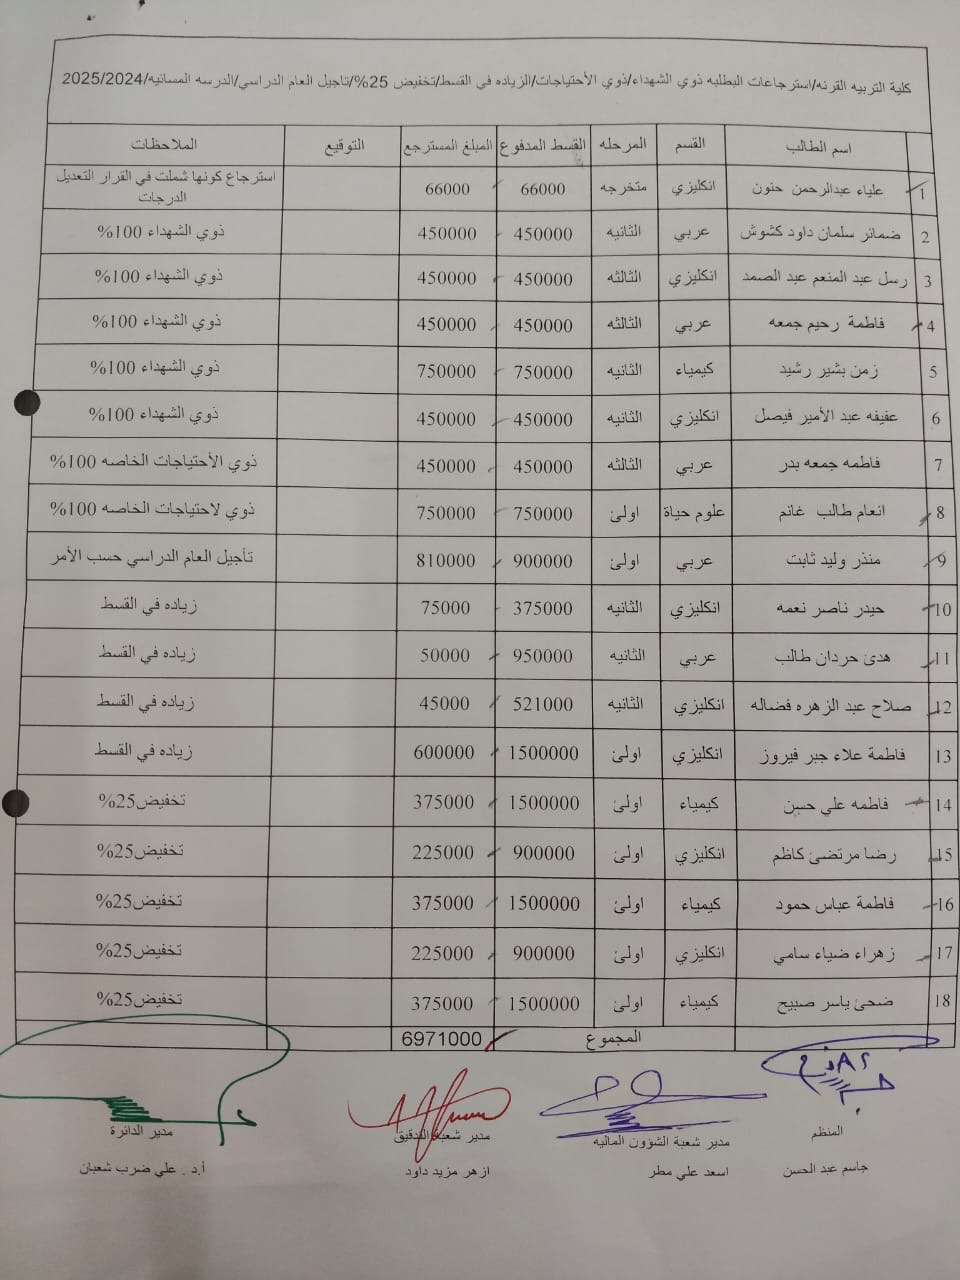 كلية التربيه القرنه/استرجاعات البطلبه ذوي الشهداء/ذوي الأحتياجات/الزياده في القسط/تخفيض 25%/تاجيل العام الدراسي/الدرسه المسائيه/2025/2024
اسم الطالب القسم المرحله القسط المدفوع المبلغ المسترجع التوقيع الملاحظات
1 علياء عبدالرحمن حنون انكليزي متخرجه 66000 66000 استرجاع كونها شملت في القرار التعديل
الدرجات
2 ضمائر سلمان داود كشوش عربي الثانيه 450000 450000 ذوي الشهداء 100%
3 رسل عبد المنعم عبد الصمد انكليزي الثالثه 450000 450000 ذوي الشهداء 100%
4 فاطمة رحيم جمعه عربي الثالثه 450000 450000 ذوي الشهداء 100%
5 زمن بشير رشيد كيمياء الثانيه 750000 750000 ذوي الشهداء 100%
6 عفيفه عبد الأمير فيصل انكليزي الثانيه 450000 450000 ذوي الشهداء 100%
7 فاطمه جمعه بدر عربي الثالثه 450000 450000 ذوي الأحتياجات الخاصه 100%
8 انعام طالب غانم علوم حياة اولئ 750000 750000 ذوي لاحتياجات الخاصه 100%
9 منذر وليد ثابت عربي اولئ 900000 810000 تأجيل العام الدراسي حسب الأمر
10 حيدر ناصر نعمه انكليزي الثانيه 375000 75000 زياده في القسط
11 هدئ حردان طالب عربي الثانيه 950000 50000 زياده في القسط
12 صلاح عبد الزهره فضاله انكليزي الثانيه 521000 45000 زياده في القسط
13 فاطمة علاء جبر فيروز انكليزي اولئ 1500000 600000 زياده في القسط
14 فاطمه علي حسن كيمياء اولئ 1500000 375000 تخفيض25%
15 رضا مرتضئ كاظم انكليزي اولئ 900000 225000 تخفيض25%
16 فاطمة عباس حمود كيمياء اولئ 1500000 375000 تخفيض25%
17 زهراء ضياء سامي انكليزي اولئ 900000 225000 تخفيض25%
18 ضحئ ياسر صبيح كيمياء اولئ 1500000 375000 تخفيض25%
المجموع 6971000
المنظم مدير شعبة الشؤون الماليه مدير شعبة التدقيق مدير الدائرة
جاسم عبد الحسن اسعد علي مطر ازهر مزيد داود أ.د . علي ضرب شعبان